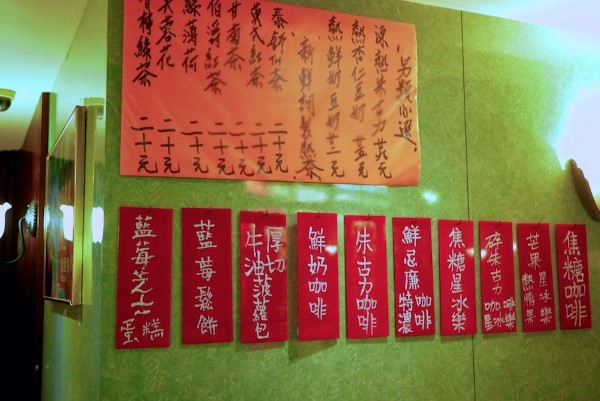 另類小選
凍熱朱古力 廿元
熱杏仁豆奶 廿元
熱鮮奶豆奶 廿二元
新鮮調製熱茶
泰舒
茶 二十元
英式紅茶 二十元
甘菊茶 二十元
伯爵紅茶 二十元
薄荷 二十元
芙蓉花 二十元
綠茶 二十元
焦糖咖啡
芒果星冰樂
熱情果
碎朱古力
咖啡星冰樂
焦糖星冰樂
鮮忌廉
特濃咖啡
朱古力咖啡
鮮奶咖啡
厚切
牛油菠蘿包
藍莓鬆餅
藍莓芝士
蛋糕